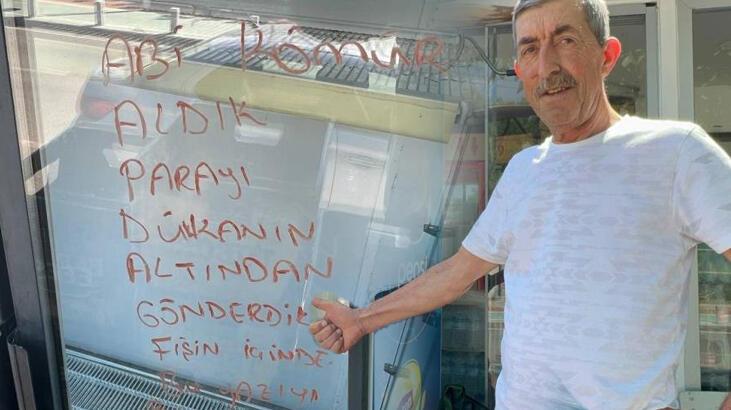 ABİ KÖMÜR
ALDIK
PARAYI
DÜKANIN
ALTINDAN
GÖNDERDİK
FİŞİN İÇİNDE
BU YAZIYI
pepsi